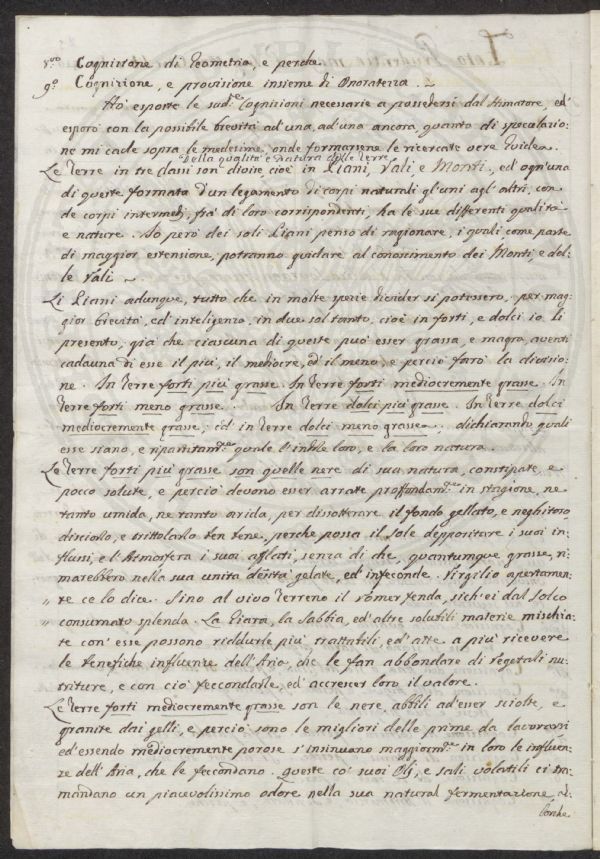 8.vo Cognizione di Geometria, e perche
9.o Cognizione, e provisione insieme di Onoratezza. ~
Hò esposte le sud.e Cognizioni necessarie a possedersi dal stimatore, ed'
esporò con la possibile brevità ad'una, ad'una ancora, quanto di specolazio:
ne mi cade sopra le medesime, onde formarsene le ricercate vere Guide. ~
Della qualità e Natura delle Terre
Le Terre in tre classi son divise, cioè in Piani, Vali, e Monti, ed ogn'una
di queste formata d'un legamento di corpi naturali gl'uni agl'altri, con
de corpi intermedj, frà di loro corrispondenti, ha le sue differenti qualità
e nature. Io però dei soli Piani penso di ragionare, i quali come parte
di maggior estensione, potranno guidare al conoscimento dei Monti, e del:
le Vali ~
Li Piani adunque, tutto che in molte spezie divider si potessero, per mag:
gior brevità, ed'inteligenza, in due sol tanto, cioè in forti, e dolci io li
presento, già che ciascuna di queste può esser grassa, e magra, aventi
cadauna di esse il più, il mediocre, ed'il meno, e perciò farò la divisio:
ne. In Terre forti più grasse. In Terre forti mediocremente grasse. In
Terre forti meno grasse. In Terre dolci più grasse. In Terre dolci
mediocremente grasse; ed'in Terre dolci meno grasse. dichiarando, quali
esse siano, e ripartitam.te quale l'indole loro, e la loro natura.
Le Terre forti più grasse son quelle nere di sua natura, constipate, e
pocco solute, e perciò devono esser arrate proffondam.te in stagione, ne
tanto umida, ne tanto arida, per dissotterare il fondo gellato, e neghitoso
disciorlo, e trittolarlo ben bene, perche possa il sole depporitare i suoi in:
flussi, e l'Atmosfera i suoi afflati, senza di che, quantumque grasse, ri:
marebbero nella sua unita densità gelate, ed'infeconde. Virgilio apertamen:
" te ce lo dice. Sino al vivo terreno il vomer fenda, sich'ei dal solco
" consumato splenda. La Giara, la Sabbia, ed'altre solutili materie mischia:
te con'esse possono riddurle più trattabili, ed'atte a più ricevere
le benefiche influenze dell'Aria, che le fan abbondare di vegetali nu:
triture, e con ciò feccondarle, ed'accrescer loro il valore.
Le Terre forti mediocremente grasse son le nere, abbili ad'esser sciolte, e
granite dai gelli, e perciò sono le migliori delle prime da lavorarsi
ed'essendo mediocremente porose s'insinuano maggiorm.te in loro le influen:
ze dell'Aria, che le fecondano. Queste co' suoi Olj, e sali volatili ci tra:
mandano un piacevolissimo odore nella sua natural fermentazione al:
lorche